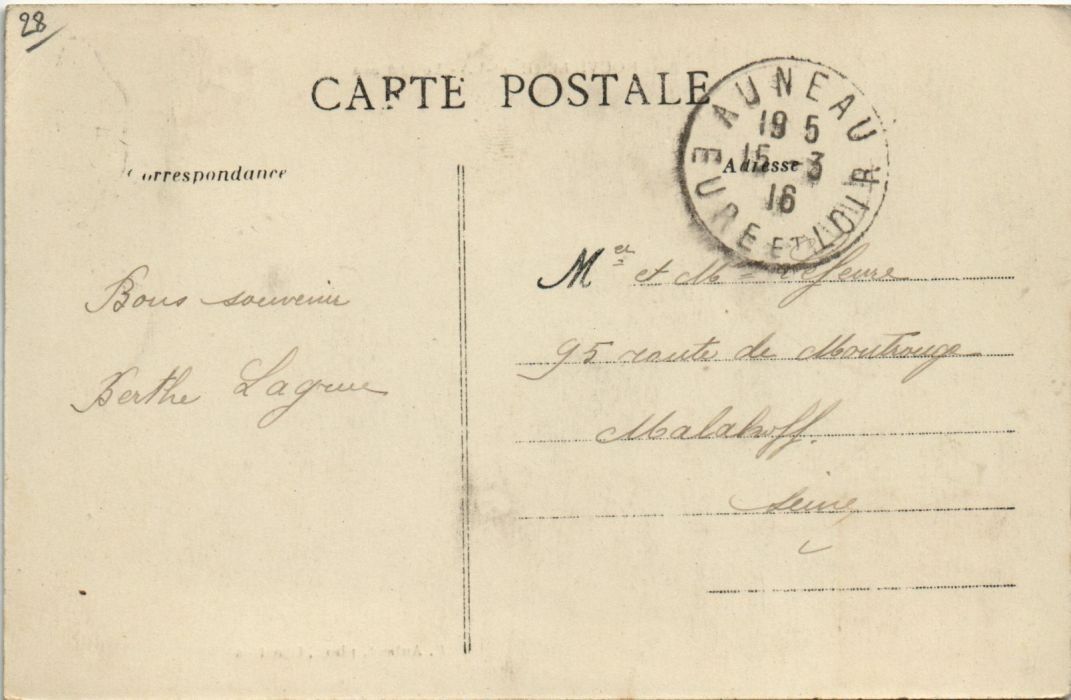 28
CARTE POSTALE
AUNEAU
19 5
15 -3
16
EURE ET LOIR
Correspondance
Adresse
Bons souvenir
Berthe Lagrue
Mr et Mme
95 route de Montrouge
Malakoff.
Seine